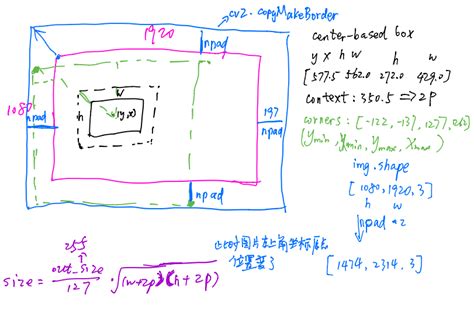 cv2. copyMakeBorder
1920
npad
center-based box
y x h w h w
[577.5 562.0 272.0 429.0]
context: 350.5 => 2p
w
h
(y,x)
1080
npad
197
npad
corners: [-122, -13, 1277,
(ymin, xmin, ymax, xmax)
img.shape
[1080, 1920, 3]
h w
npad
npad *2
[1474, 2314, 3]
255
size = out_size / 127 · √(w+2p)(h+2p)
此时图片左上角坐标原点
位置变了